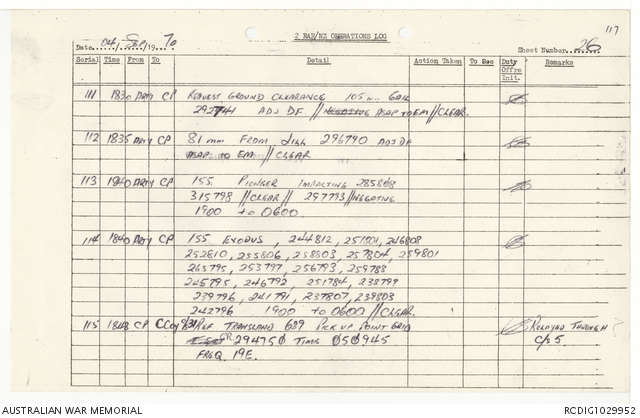 117
2 RAR/NZ OPERATIONS LOG
Date 04/Sep/1970 Sheet Number 26
Serial Time From To Details Action Taken To See Duty Offrs Init. Remarks
111 1830 Arty CP Request Ground Clearance 105mm
292741 ADJ DF // ASAP to EM // CLEAR.
112 1835 Arty CP 81mm From 296790 ADJ DF
ASAP to EM // CLEAR
113 1840 Arty CP 155. Pioneer Impacting 285808
315798 // CLEAR // 297793 // Negating
1900 to 0600.
114 1840 Arty CP 155 Exodus, 244812, 251801, 246808
252810, 255806, 258803, 257804, 259801
265795, 253797, 256793, 259788
245795, 246792, 251784, 238799
239796, 241791, 237807, 239803
242796 1900 to 0600 // CLEAR.
115 1848 CP C Coy Ref Transland 689 Pick up Point Grid Relayed Through
GR 294750 Time 050945 C/S 5
FREQ. 19E.
AUSTRALIAN WAR MEMORIAL RCDIG1029952